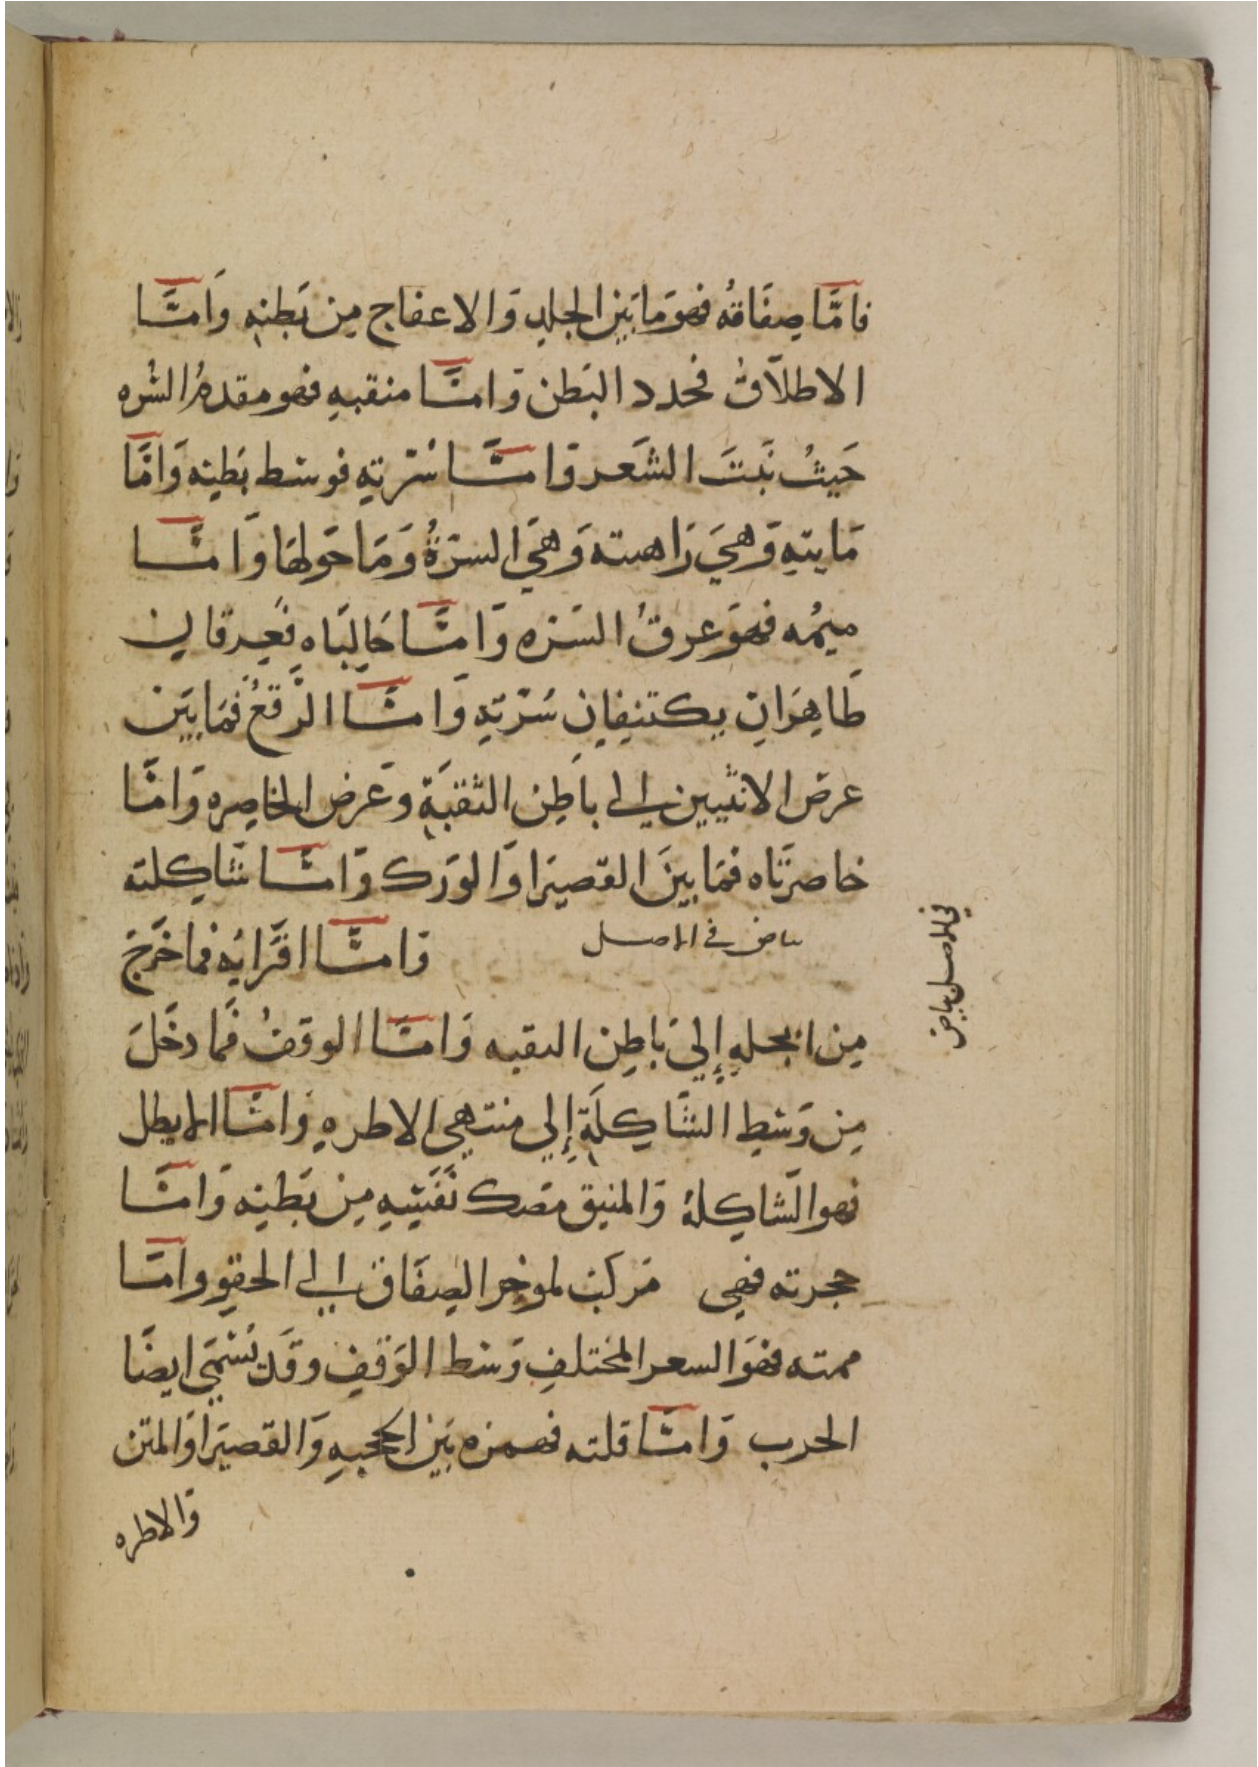 فامَّا صِفَاقهُ فهوَ مَا بَين الجلدِ وَ الاعفاج مِن بَطنِه وَامَّا
الاطلَاقُ فحدد البَطن وَامَّا منقبهِ فهو مقدمُ السُره
حَيثُ نَبتَ الشَعر وَامَّا سُرّتهِ فوسَط بَطنِه وَامَّا
مَا بتهِ وَهيَ رَاهىته وَهيَ السرَةُ وَمَا حَولهَا وَامَّا
فهوَ عرقُ السَره وَامَّا حَالبَاه فعِرقان
ظَاهِرَانِ يكتنِفانِ سُرّتهِ وَامَّا الرَّفغُ فمَا بَين
عرض الانثيين الى باطِن الثقبَةِ وَعَرض الخاصِره وَامَّا
خاصرتَاه فمَا بينَ القصيرَا وَالوَرك وَامَّا شَاكلته
بياض في الاصل وَامَّا اقرَابُه فما خَرَجَ
مِن إِلىَ بَاطِن النقبه وَامَّا الوقفُ فمَا دخَلَ
مِن وَسَطِ الشَّاكِلَةِ إِلي منتهي الاطرهِ وَامَّا الايطل
فهو الشَاكِلهُ وَالمنيق مِن بَطنِه وَامَّا
حجرته فهي مَركبُ لموخر الصِفَاق الى الحقوِ وامَّا
ممته فهوَ السعر المختلفِ وَسَط الوَقفِ وقَد يُسَمَي ايضًا
الحرب وَامَّا قلته بَين الحجبهِ وَالقصيرَا وَالمتن
وَالاطره
في الاصل بياض